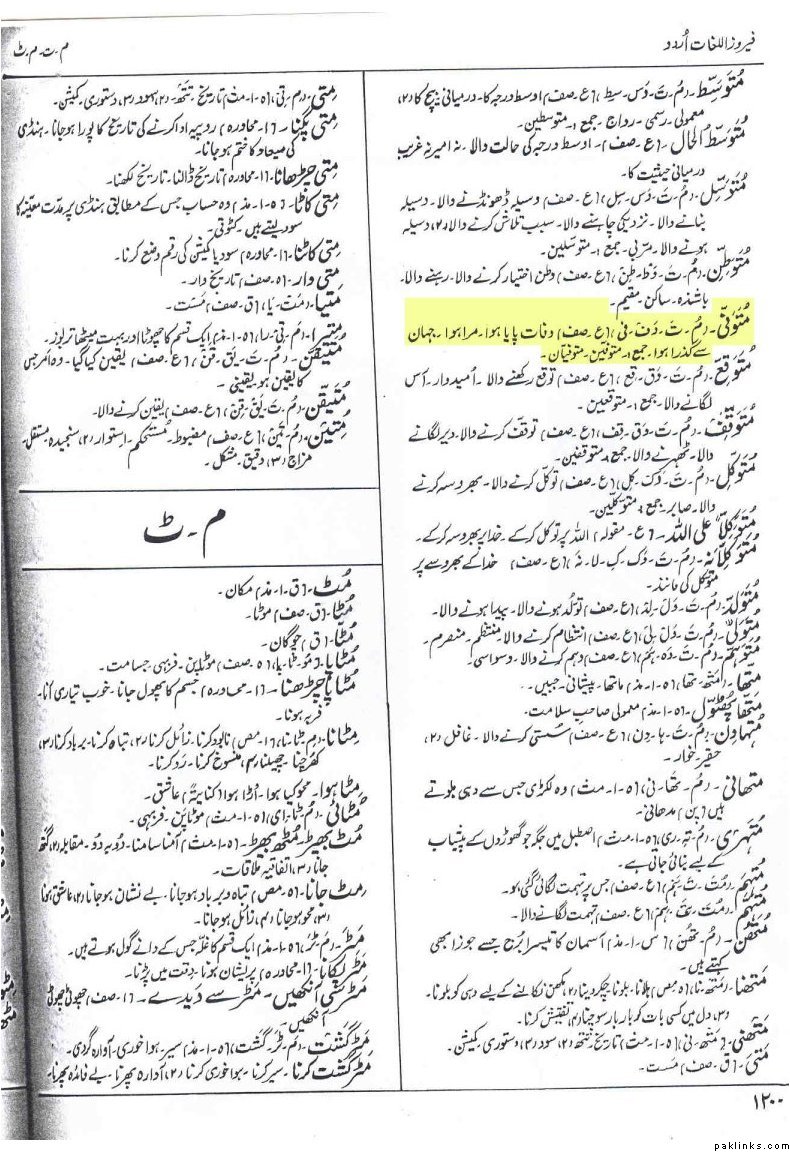 فیروز اللغات اُردو
م۔ت۔م۔ٹ
مُتَوَسِّط۔ (مُ۔تَ۔وَسْ۔سِط) (ع۔صف) اوسط درجہ کا۔ درمیانی بیچ کا (۲)
معمولی۔ رسمی۔ رواج۔ جمع : متوسطین۔
مُتَوَسِّطُ الحَال (ع۔صف)۔ اوسط درجہ کی حالت والا۔ نہ امیر نہ غریب
درمیانی حیثیت کا۔
مُتَوَسِّل۔ (مُ۔تَ۔وَسْ۔سِل) (ع۔صف) وسیلہ ڈھونڈنے والا۔ وسیلہ
بنانے والا۔ نزدیکی چاہنے والا۔ سبب تلاش کرنے والا (۲) وسیلہ
ہونے والا۔ مربّی۔ جمع : متوسلین۔
مُتَوَطِّن۔ (مُ۔تَ۔وَطْ۔طِن) (ع۔صف) وطن اختیار کرنے والا۔ رہنے والا۔
باشندہ۔ ساکن۔ مقیم۔
مُتَوَفّیٰ۔ (مُ۔تَ۔وَفْ۔فیٰ) (ع۔صف) وفات پایا ہوا۔ مرا ہوا۔ جہان
سے گذرا ہوا۔ جمع : متوفین۔ متوفیان۔
مُتَوَقِّع۔ (مُ۔تَ۔وَقْ۔قِع) (ع۔صف) توقع رکھنے والا۔ اُمیدوار۔ آس
لگانے والا۔ جمع : متوقعین۔
مُتَوَقِّف۔ (مُ۔تَ۔وَقْ۔قِف) (ع۔صف) توقّف کرنے والا۔ دیر لگانے
والا۔ ٹھہرنے والا۔ جمع : متوقفین۔
مُتَوَکِّل۔ (مُ۔تَ۔وَکْ۔کِل) (ع۔صف) توکّل کرنے والا۔ بھروسہ کرنے
والا۔ صابر۔ جمع : متوکلین۔
مُتَوَکِّلاً عَلَی اللہ۔ (ع۔مقولہ) اللہ پر توکل کر کے۔ خدا پر بھروسہ کر کے۔
مُتَوَکِّلانہ۔ (مُ۔تَ۔وَکْ۔کِ۔لا۔نَہ) (ع۔صف) خدا کے بھروسے پر
متوکل کی مانند۔
مُتَوَلِّد۔ (مُ۔تَ۔وَلْ۔لِد) (ع۔صف) تولّد ہونے والا۔ پیدا ہونے والا۔
مُتَوَلّی۔ (مُ۔تَ۔وَلْ۔لی) (ع۔صف) انتظام کرنے والا۔ منتظم۔ منصرم۔
مُتَوَہِّم۔ (مُ۔تَ۔وَہْ۔ہِم) (ع۔صف) وہم کرنے والا۔ وسواسی۔
مَتھا۔ (مَتھ۔تھا) (ہ۔ا۔مذ) ماتھا۔ پیشانی۔ جبیں۔
(ہ۔ا۔مذ) معمولی صاحب سلامت۔
مُتَہاوِن۔ (مُ۔تَ۔ہا۔وِن) (ع۔صف) سُستی کرنے والا۔ غافل (۲)
حقیر۔ خوار۔
مَتھانی۔ (مَ۔تھا۔نی) (ہ۔ا۔مث) وہ لکڑی جس سے دہی بلوتے
ہیں (پن) مدھانی۔
مُتہری۔ (ہ۔ا۔مث) اصطبل میں جگہ جو گھوڑوں کے پیشاب
کے لیے بنائی جاتی ہے۔
مُتَّہَم۔ (مُتْ۔تَ۔ہَم) (ع۔صف) جس پر تہمت لگائی گئی ہو۔
مُتَّہِم۔ (مُتْ۔تَ۔ہِم) (ع۔صف) تہمت لگانے والا۔
مَتھن۔ (س۔ا۔مذ) آسمان کا تیسرا بُرج جسے جوزا بھی
کہتے ہیں۔
مَتھنا۔ (مَتھ۔نا) (ہ۔مص) بلانا۔ بلونا۔ چکر دینا (۲) مکھن نکالنے کے لیے دہی کو بلونا۔
(۳) دل میں کسی بات کو بار بار سوچنا (۴) تفتیش کرنا۔
مَتھنی۔ (مَتھ۔نی) (ہ۔ا۔مث) تاریخ۔ تتھ (۲) سود (۳) دستوری۔ کمیشن۔
مَتی۔ (ق۔صف) مَست۔
مِتی۔ (مِ۔تی) (ہ۔ا۔مث) تاریخ۔ تتھ (۲) سود (۳) دستوری۔ کمیشن۔
مِتی پُگنا۔ (ا۔محاورہ) روپیہ ادا کرنے کی تاریخ کا پورا ہوجانا۔ ہنڈی
کی میعاد کا ختم ہو جانا۔
مِتی چڑھانا۔ (ا۔محاورہ) تاریخ ڈالنا۔ تاریخ لکھنا۔
مِتی کاٹا۔ (ہ۔ا۔مذ) وہ حساب جس کے مطابق ہنڈی پر مدت معیّنہ کا
سود لیتے ہیں۔ کٹوتی۔
مِتی کاٹنا۔ (ا۔محاورہ) سود یا کمیشن کی رقم وضع کرنا۔
مِتی وار۔ (ہ۔صف) تاریخ وار۔
مَتیا۔ (مَتْ۔یا) (ق۔صف) مَست۔
مَتیرا۔ (مَ۔تی۔را) (ہ۔ا۔مذ) ایک قسم کا چھوٹا اور بہت میٹھا تربوز۔
مُتَیَقَّن۔ (مُ۔تَ۔یَقْ۔قَن) (ع۔صف) یقین کیا گیا۔ وہ امر جس
کا یقین ہو۔ یقینی۔
مُتَیَقِّن۔ (مُ۔تَ۔یَقْ۔قِن) (ع۔صف) یقین کرنے والا۔
مَتین۔ (مَ۔تین) (ع۔صف) مضبوط۔ مُستحکم۔ استوار (۲) سنجیدہ۔ مستقل۔
مزاج (۳) دقیق۔ مشکل۔
م۔ٹ
مُٹ۔ (ق۔ا۔مذ) مکان۔
مُٹا۔ (ق۔صف) موٹا۔
مُٹّا۔ (ق) چوگان۔
مُٹاپا۔ (مُ۔ٹا۔پا) (ہ۔صف) موٹاپن۔ فربہی۔ جسامت۔
مُٹاپا چڑھنا۔ (ا۔محاورہ) جسم کا پھول جانا۔ خوب تیاری آنا۔
فربہ ہونا۔
مِٹانا۔ (مِ۔ٹا۔نا) (ہ۔مص) نابود کرنا۔ زائل کرنا (۲) تباہ کرنا۔ برباد کرنا (۳)
کھرچنا۔ چھیلنا (۴) منسوخ کرنا۔ رد کرنا۔
مِٹا ہوا۔ محو کیا ہوا۔ اُڑا ہوا (کنایۃً) عاشق۔
مُٹائی۔ (مُ۔ٹا۔ای) (ہ۔ا۔مث) موٹاپن۔ فربہی۔
مُٹ بھیڑ۔ مُٹھ بھیڑ۔ (ہ۔ا۔مث) آمنا سامنا۔ دُوبدُو۔ مقابلہ (۲) گتھ
جانا (۳) اتفاقیہ ملاقات۔
مِٹ جانا۔ (ہ۔مص) تباہ و برباد ہوجانا۔ بے نشان ہوجانا (۲) عاشق ہونا
(۳) محو ہوجانا (۴) زائل ہوجانا۔
مَٹر۔ (مَ۔ٹَر) (ہ۔ا۔مذ) ایک قسم کا غلّہ جس کے دانے گول ہوتے ہیں۔
(ا۔محاورہ) پریشان ہونا۔ دقت میں پڑنا۔
مَٹر سی آنکھیں۔ مَٹر سے دِیدے۔ (ا۔صف) چھوٹی چھوٹی
آنکھیں۔
مَٹر گشت۔ (مَ۔ٹَر۔گشت) (ہ۔ا۔مذ) سیر۔ ہوا خوری۔ آوارہ گردی۔
مَٹر گشت کرنا۔ سیر کرنا۔ ہوا خوری کرنا (۲) آوارہ پھرنا۔ بے فائدہ پھرنا۔
۱۲۰۰
paklinks.com